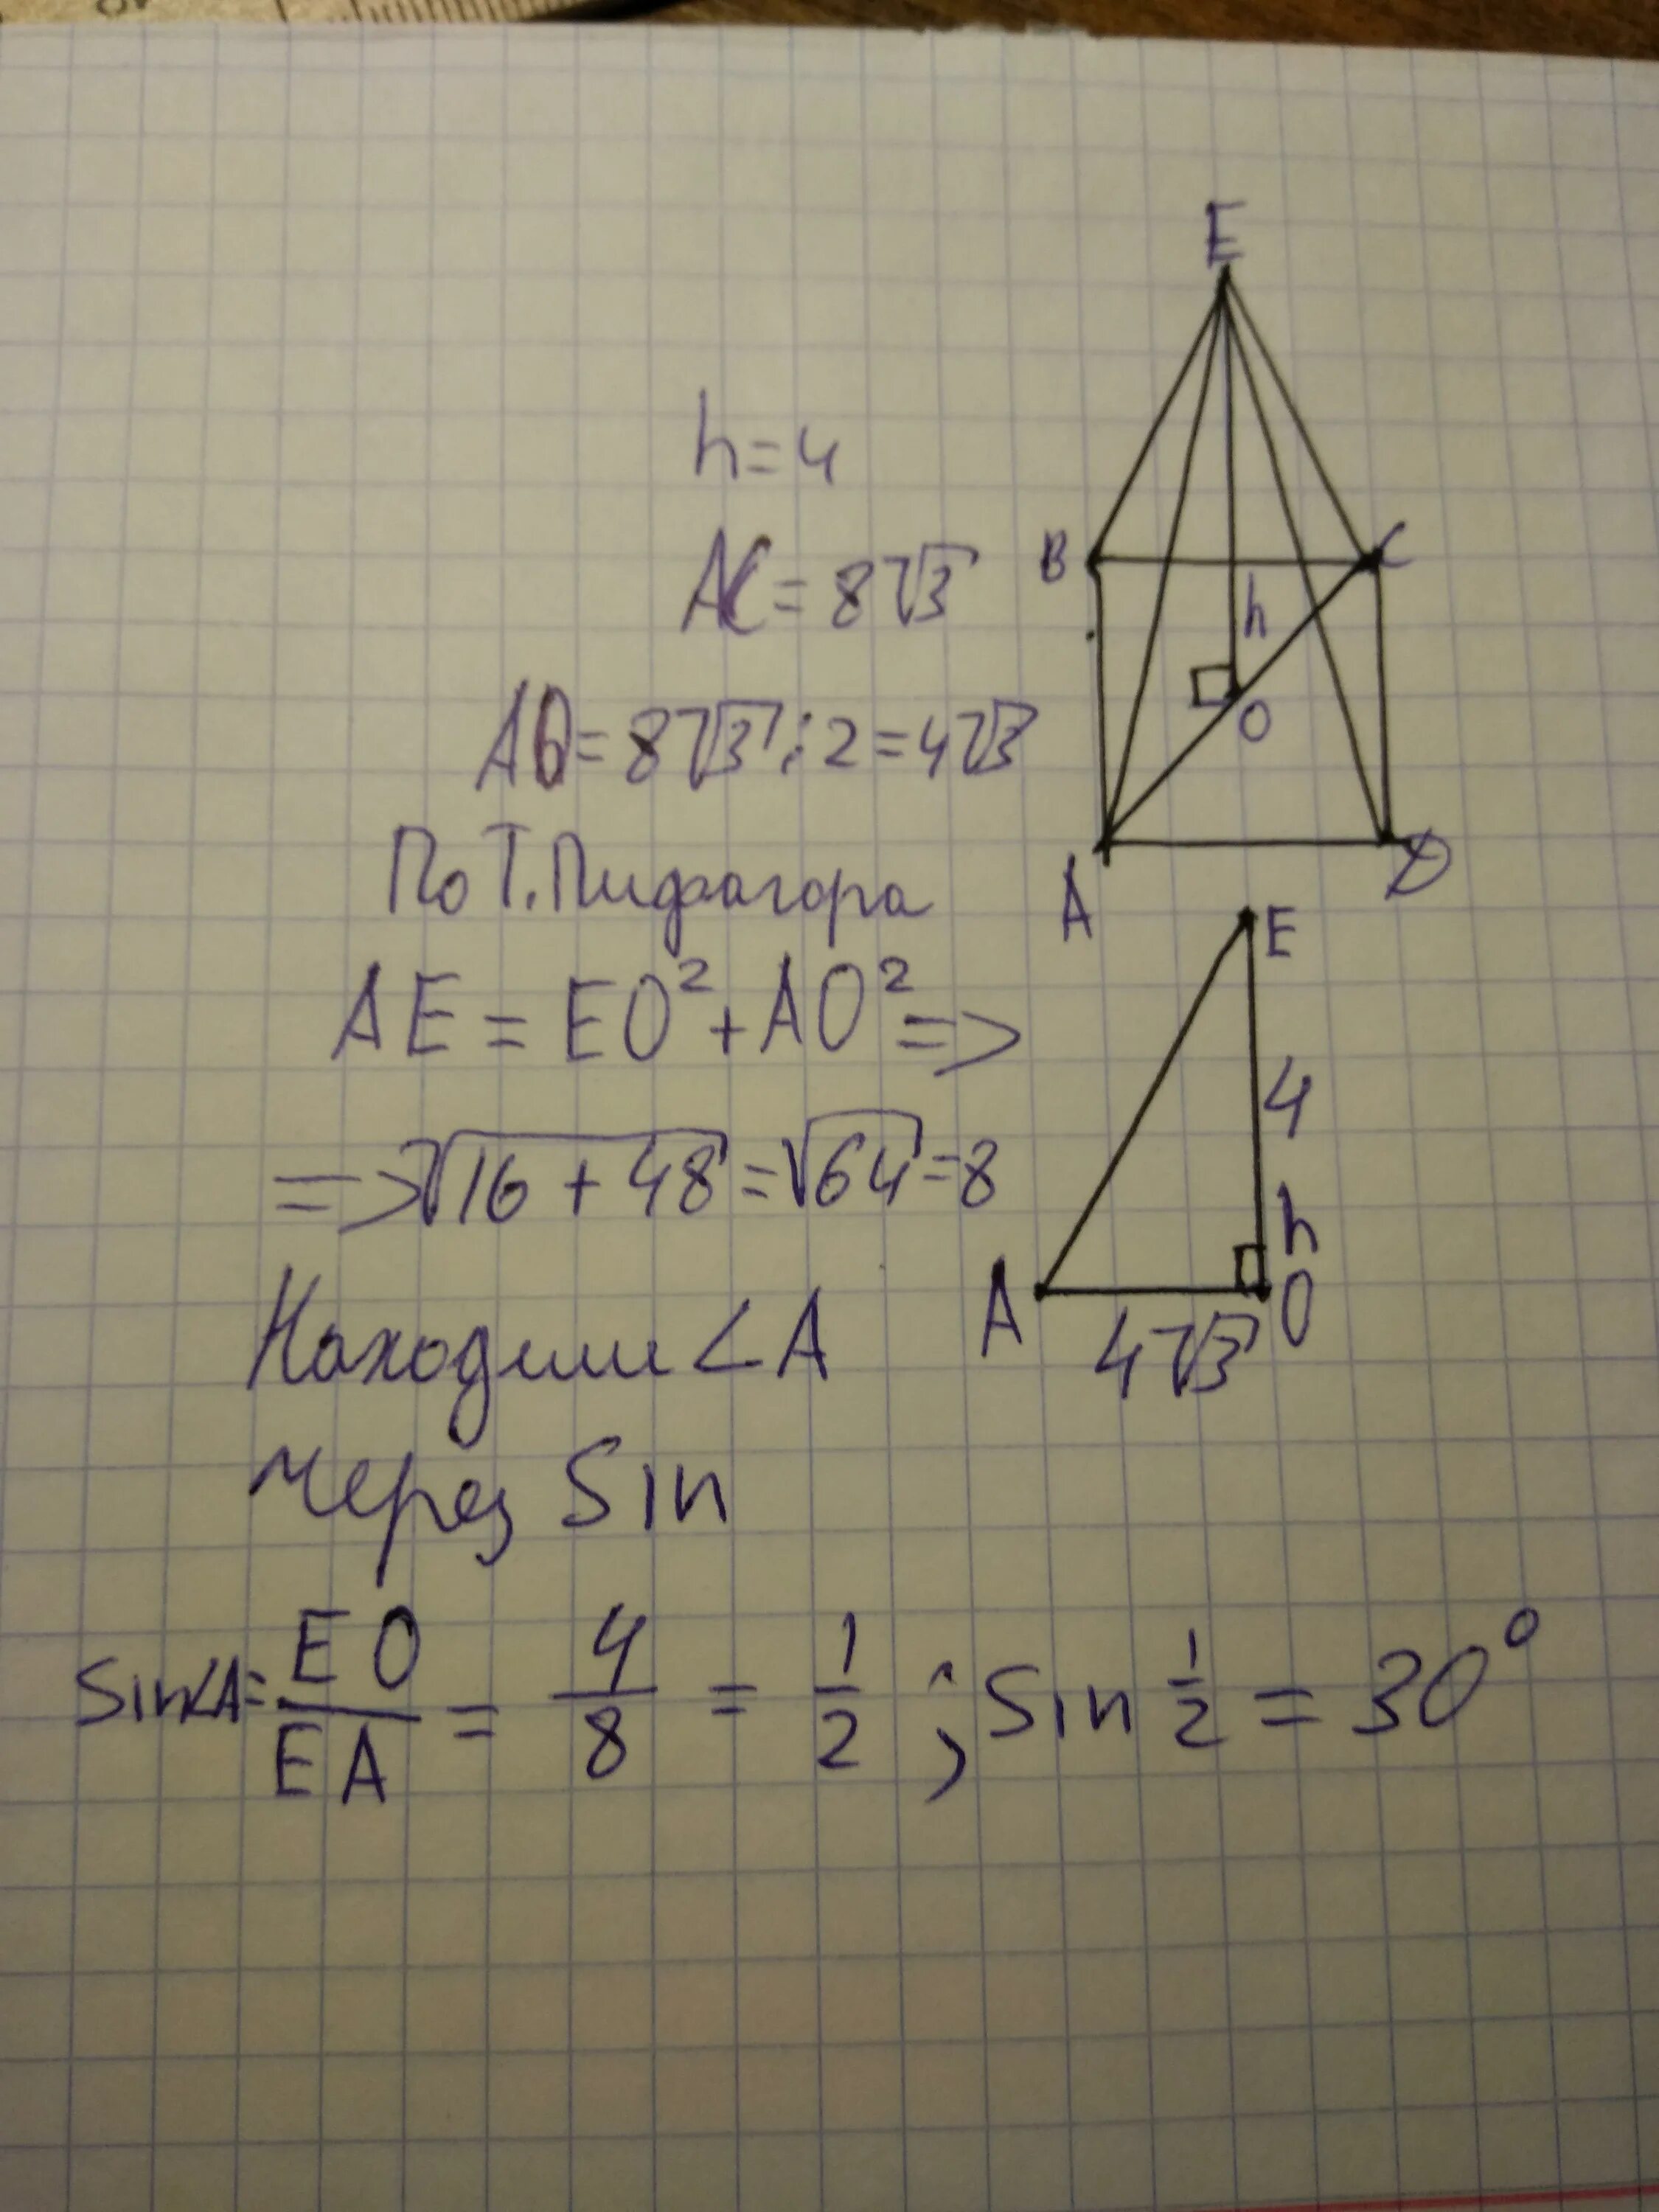 E
h=4
AC=8√3
B
C
h
O
AO=8√3:2=4√3
По Т.Пифагора
A
D
E
AE=EO²+AO²=>
4
=>√16+48=√64=8
h
A
O
4√3
Находим <A
через Sin
Sin<A=EO/EA=4/8=1/2; Sin 1/2=30°